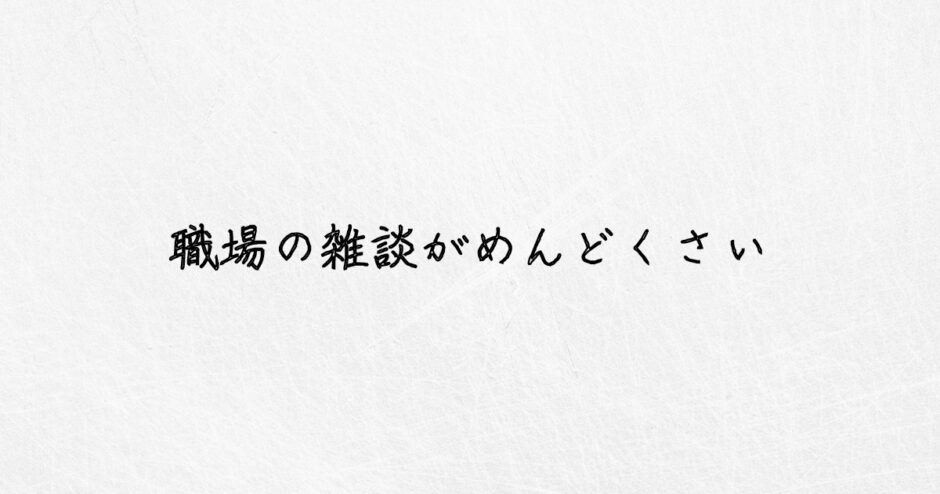 職場の雑談がめんどくさい